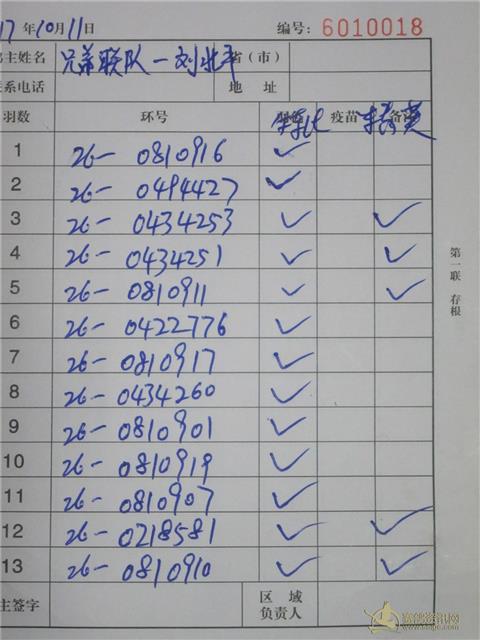 17 年10月11日 编号: 6010018
鸽主姓名 兄弟联队-刘北平 省(市)
联系电话 地 址
羽数 环号 疫苗
1 26- 0810916 ✓
2 26- 0494427 ✓
3 26- 0434253 ✓ ✓
4 26- 0434251 ✓ ✓
5 26- 0810911 ✓ ✓
6 26- 0422776 ✓
7 26- 0810917 ✓
8 26- 0434260 ✓
9 26- 0810901 ✓
10 26- 0810919 ✓
11 26- 0810907 ✓
12 26- 0218581 ✓ ✓
13 26- 0810910 ✓ ✓
主签字 区 域
负责人
第一联 存根